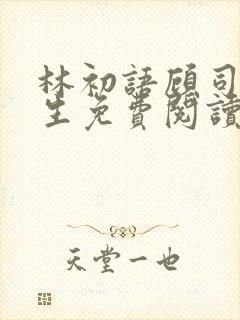 林初語顧司
生免費閱讀
天堂一也